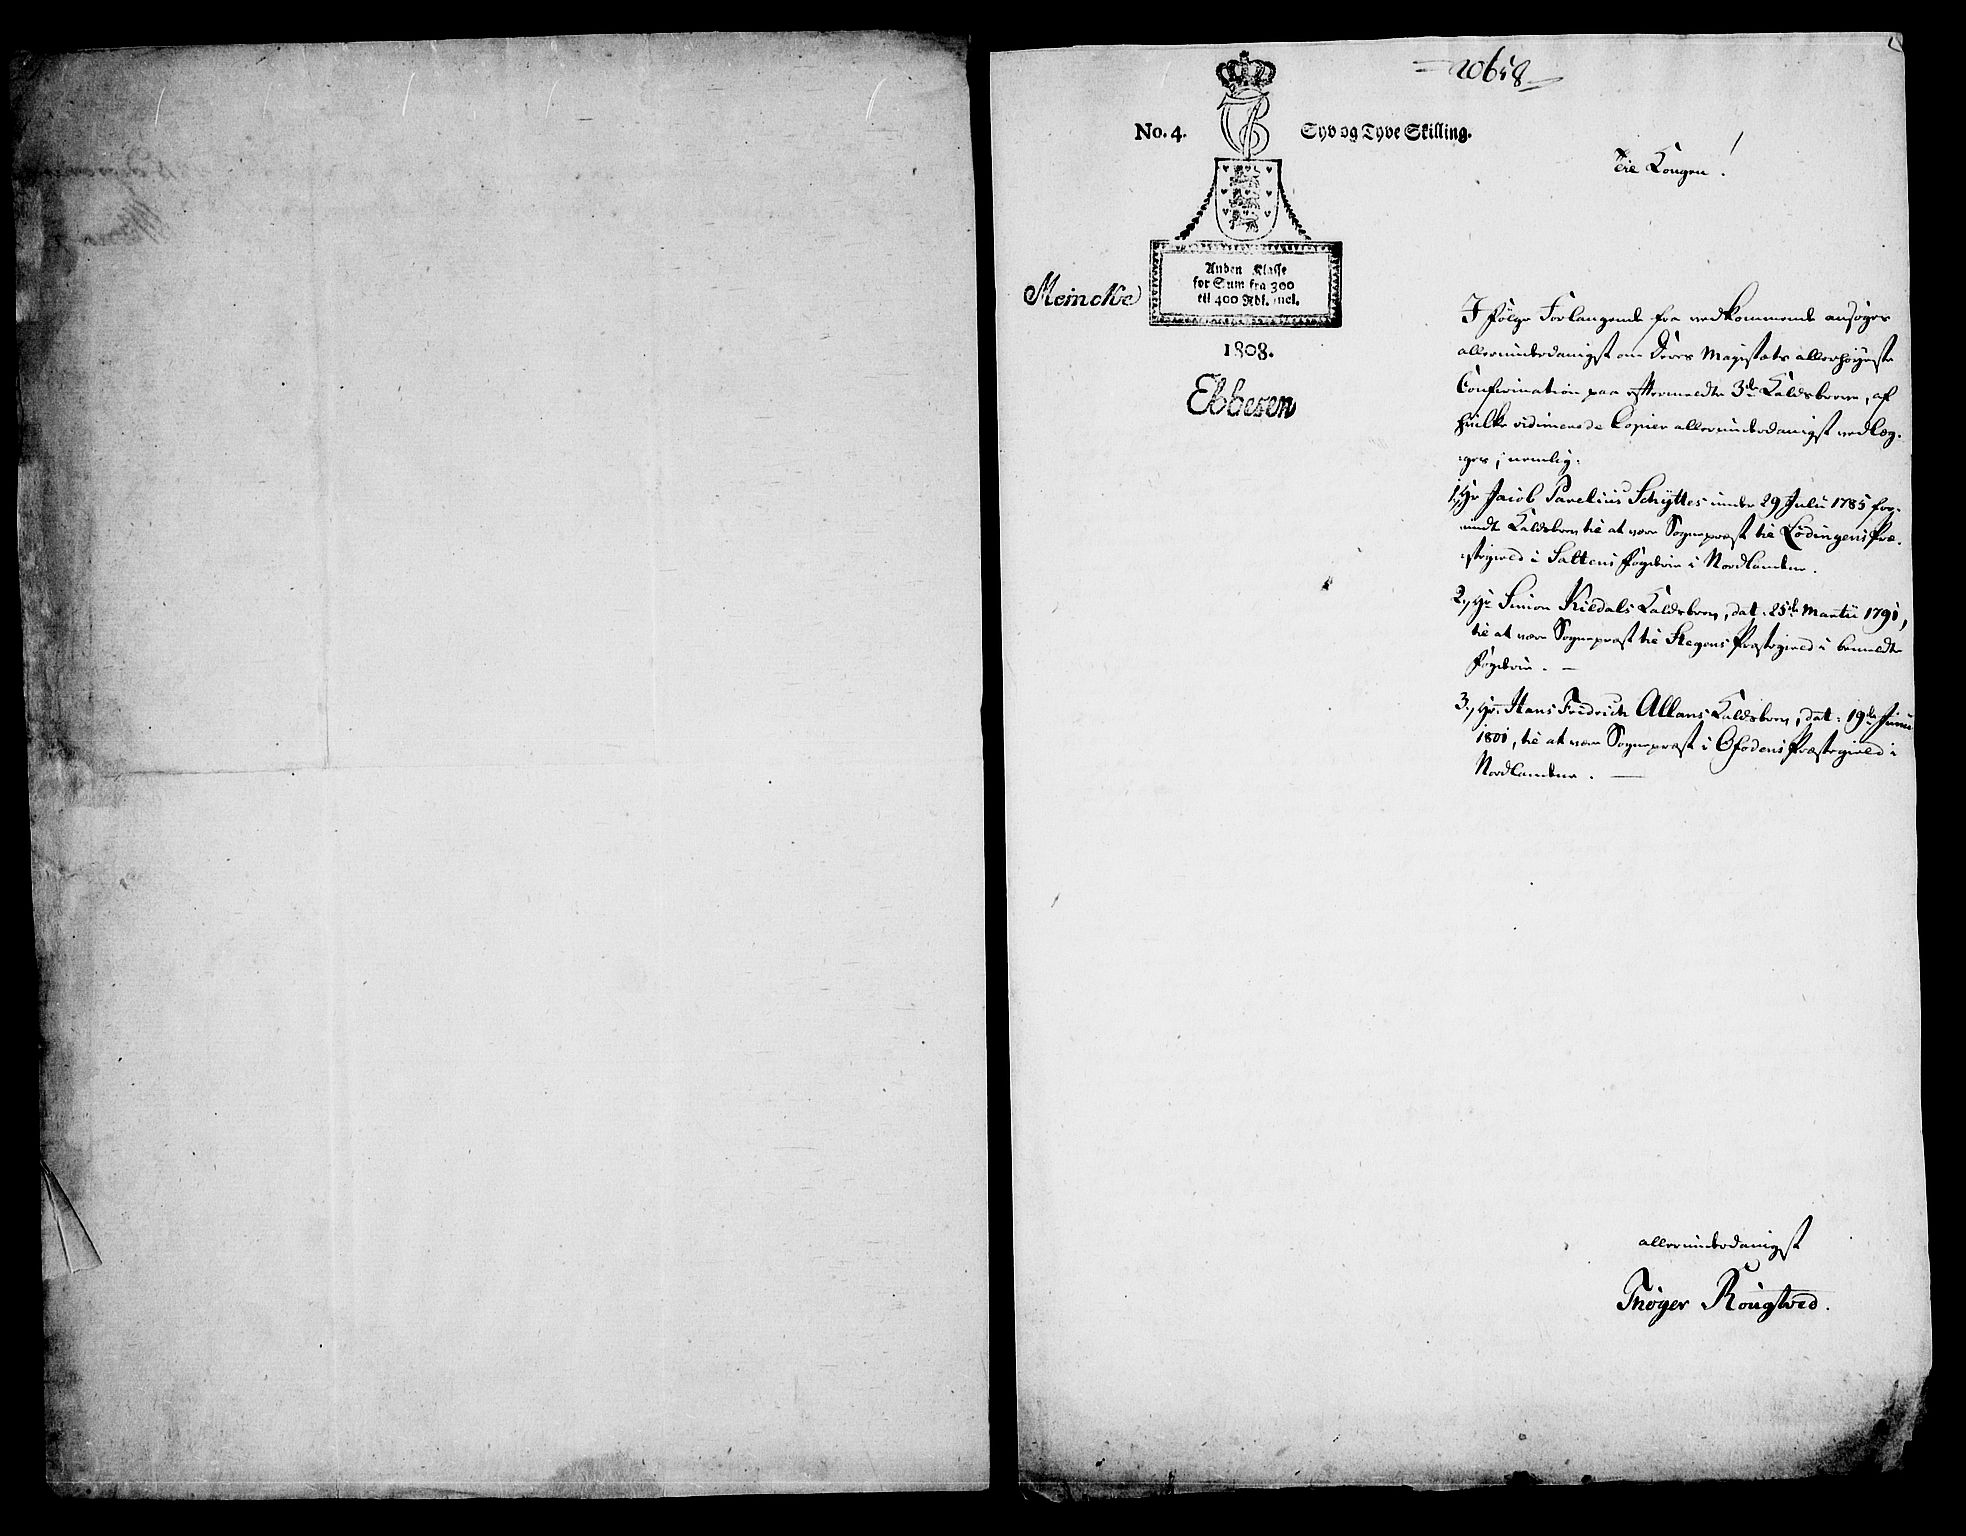 20658
No. 4.
Syv og Tyve Skilling.
Til Kongen!
Anden Klasse
for Sum fra 300
til 400 Rdl. incl.
Meincke
1808.
Ebbesen
I følge Forlangende fra vedkommende ansøges
allerunderdanigst om Deres Majestæts allerhøyeste
Confirmation paa eftermeldte 3de Kaldsbreve, af
hvilke vidimerede Copier allerunderdanigst vedlæg-
ges, nemlig:
1, Hr Jacob Parelius Schyttes under 29 Julii 1785 for-
undte Kaldsbrev til at være Sognepræst til Lødingens Præ-
stegield i Saltens Fogderie i Nordlandene.
2, Hr Simon Kildals Kaldsbrev, dat: 25de Martii 1791,
til at være Sognepræst til Stegens Præstegield i bemeldte
Fogderie. —
3, Hr. Hans Fredrich Allans Kaldsbrev, dat: 19de Junii
1801, til at være Sognepræst i Ofodens Præstegield i
Nordlandene. —
allerunderdanigst
Thøger Rougtved.